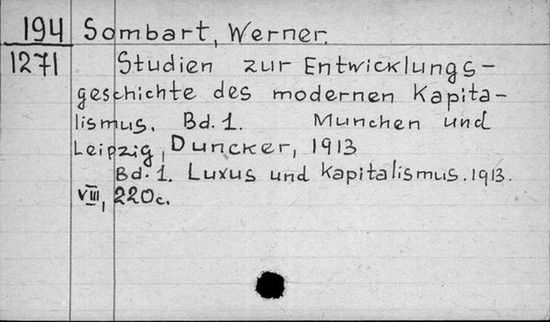 194 Sombart, Werner.
1271 Studien zur Entwicklungs-
geschichte des modernen Kapita-
lismus. Bd. 1. Munchen und
Leipzig, Duncker, 1913
Bd. 1. Luxus und Kapitalismus. 1913.
VIII, 220c.